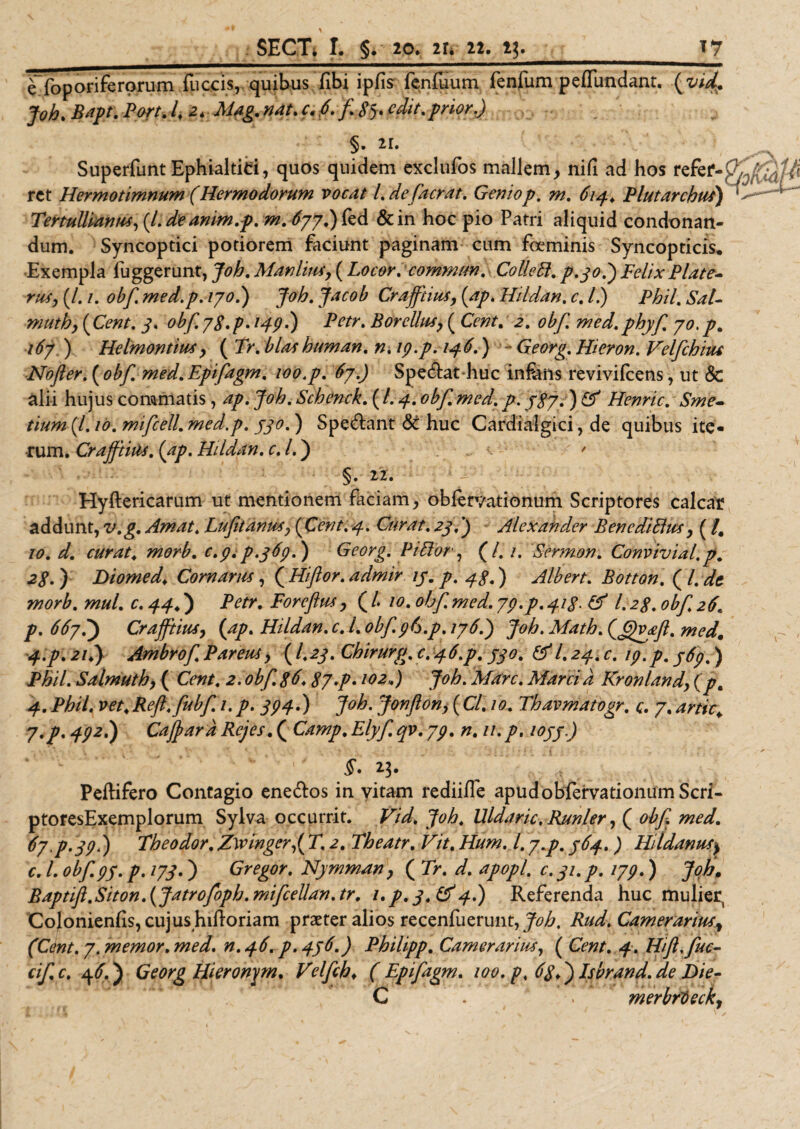 SECT. I. §. 20. 21. 22. 23. 17
è soporiferorum succis, quibus sibi ipsis sensuum sensum pessundant. (vid.
Joh. Bapt. Port. l. 2. Mag. nat. c. 6. f. 85. edit. prior.)
§. 21.
Supersunt Ephialtici, quos quidem exclusos mallem, nisi ad hos refer-
ret Hermotimnum (Hermodorum vocat l. de sacrat. Genio p. m. 614. Plutarchus)
Tertullianus, (l. de anim. p. m. 677.) sed & in hoc pio Patri aliquid condonan-
dum. Syncoptici potiorem faciunt paginam cum fœminis Syncopticis.
Exempla suggerunt, Joh. Manlius, (Locor. commun. Collect. p. 30.) Felix Plate-
rus, (l. 1. obs. med. p. 170.) Joh. Jacob Crafftius, (ap. Hildan. c. l.) Phil. Sal-
muth, (Cent. 3. obs. 78. p. 149.) Petr. Borellus, (Cent. 2. obs. med. phys. 70. p.
167.) Helmontius, (Tr. blas human. n. 19. p. 146.) - Georg. Hieron. Velschius
Noster. (obs. med. Episagm. 100. p. 67.) Spectat huc infans reviviscens, ut &
alii hujus commatis, ap. Joh. Schenck. (l. 4. obs. med. p. 587.) & Henric. Sme-
tium (l. 10. miscell. med. p. 530.) Spectant & huc Cardialgici, de quibus ite-
rum. Crafftius. (ap. Hildan. c. l.)
§. 22.
Hystericarum ut mentionem faciam, observationum Scriptores calcar
addunt, v. g. Amat. Lusitanus, (Cent. 4. Curat. 23.) Alexander Benedictus, (l.
10. d. curat. morb. c. 9. p. 369.) Georg. Pictor, (l. 1. Sermon. Convivial. p.
28.) Diomed. Cornarus, (Histor. admir 15. p. 48.) Albert. Botton. (l. de
morb. mul. c. 44.) Petr. Forestus, (l. 10. obs. med. 79. p. 418. & l. 28. obs. 26.
p. 667.) Crafftius, (ap. Hildan. c. l. obs. 96. p. 176.) Joh. Math. (Quæst. med.
4. p. 21.) Ambros. Pareus, (l. 23. Chirurg. c. 46. p. 530. & l. 24. c. 19. p. 569.)
Phil. Salmuth, (Cent. 2. obs. 86. 87. p. 102.) Joh. Marc. Marci à Kronland, (p.
4. Phil. vet. Rest. subs. 1. p. 394.) Joh. Jonston, (Cl. 10. Thavmatogr. c. 7. artic.
7. p. 492.) Caspar à Rejes. (Camp. Elys. qv. 79. n. 11. p. 1055.)
§. 23.
Pestifero Contagio enectos in vitam rediisse apud observationum Scri-
ptores Exemplorum Sylva occurrit. Vid. Joh. Uldaric. Runler, (obs. med.
67. p. 39.) Theodor. Zwinger, (T. 2. Theatr. Vit. Hum. l. 7. p. 564.) Hildanus,
c. l. obs. 95. p. 173.) Gregor. Nymman, (Tr. d. apopl. c. 31. p. 179.) Joh.
Baptist. Siton. (Jatrosoph. miscellan. tr. 1. p. 3. & 4.) Referenda huc mulier
Coloniensis, cujus historiam præter alios recensuerunt, Joh. Rud. Camerarius,
(Cent. 7. memor. med. n. 46. p. 456.) Philipp. Camerarius, (Cent. 4. Hist. suc-
cis. c. 46.) Georg Hieronym. Velsch. (Episagm. 100. p. 68.) Isbrand. de Die-
C merbröeck,